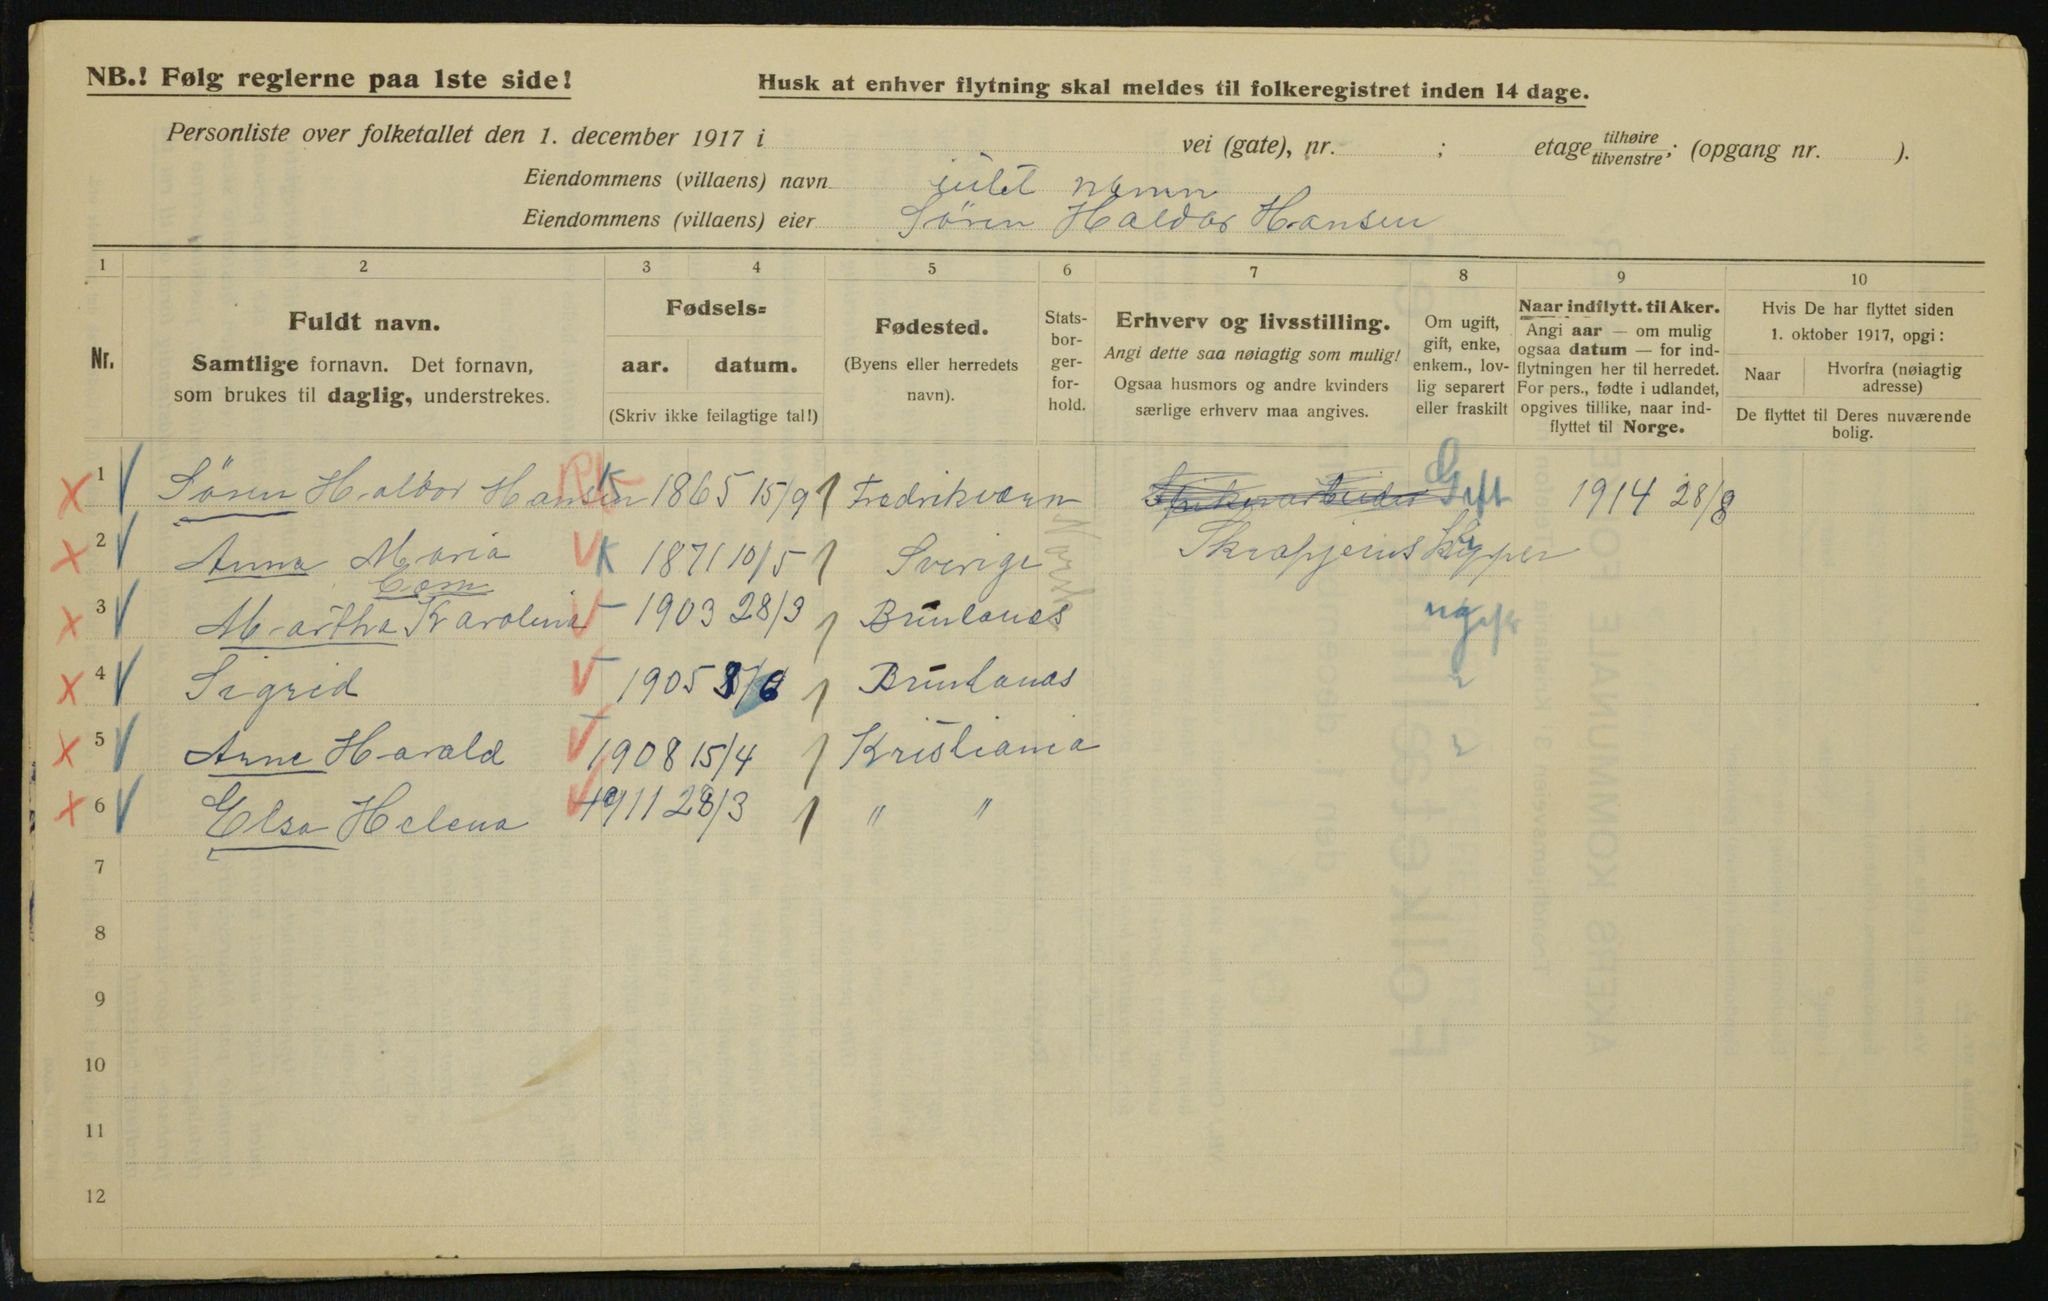 NB.! Følg reglerne paa 1ste side!
Husk at enhver flytning skal meldes til folkeregistret inden 14 dage.
Personliste over folketallet den 1. december 1917 i vei (gate), nr. ; etage tilhøire tilvenstre; (opgang nr. ).
Eiendommens (villaens) navn intet namn
Eiendommens (villaens) eier Sören Haldor Hansen
1 2 3 4 5 6 7 8 9 10
Nr.
Fuldt navn.
Samtlige fornavn. Det fornavn,
som brukes til daglig, understrekes.
Fødsels=
aar. datum.
(Skriv ikke feilagtige tal!)
Fødested.
(Byens eller herredets
navn).
Stats-
bor-
ger-
for-
hold.
Erhverv og livsstilling.
Angi dette saa nøiagtig som mulig!
Ogsaa husmors og andre kvinders
særlige erhverv maa angives.
Om ugift,
gift, enke,
enkem., lov-
lig separert
eller fraskilt
Naar indflytt. til Aker.
Angi aar — om mulig
ogsaa datum — for ind-
flytningen her til herredet.
For pers., fødte i udlandet,
opgives tillike, naar ind-
flyttet til Norge.
Hvis De har flyttet siden
1. oktober 1917, opgi:
Naar
Hvorfra (nøiagtig
adresse)
De flyttet til Deres nuværende
bolig.
1 Sören Haldor Hansen 1865 15/9 Fredriksværn Gift 1914 28/8
2 Anna Maria 1871 10/5 Sverige Skrapjerns
3 Martha Karolina 1903 28/3 Brunlanæs ugift
4 Sigrid 1905 Brunlanæs
5 Arne Harald 1908 15/4 Kristiania
6 Elsa Helena 1911 28/3 " "
7
8
9
10
11
12